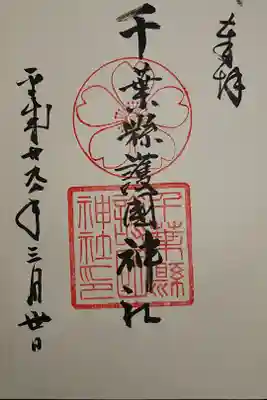 奉拝
千葉縣護國神社
千葉縣護國神社印
平成廿九年三月廿日